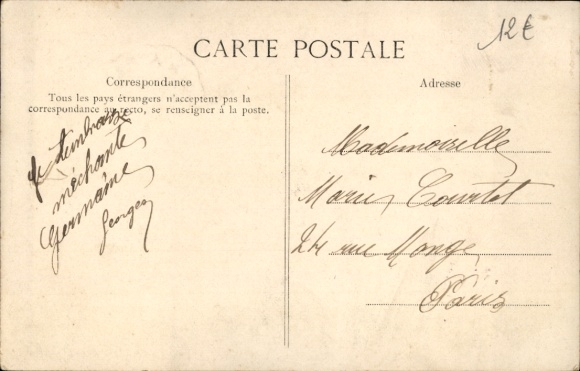 12€
CARTE POSTALE
Correspondance
Tous les pays étrangers n'acceptent pas la
correspondance au recto, se renseigner à la poste.
Je t'embrasse
méchante
Germaine
Georges
Adresse
Mademoiselle
Marie Courtot
24 rue Monge
Paris